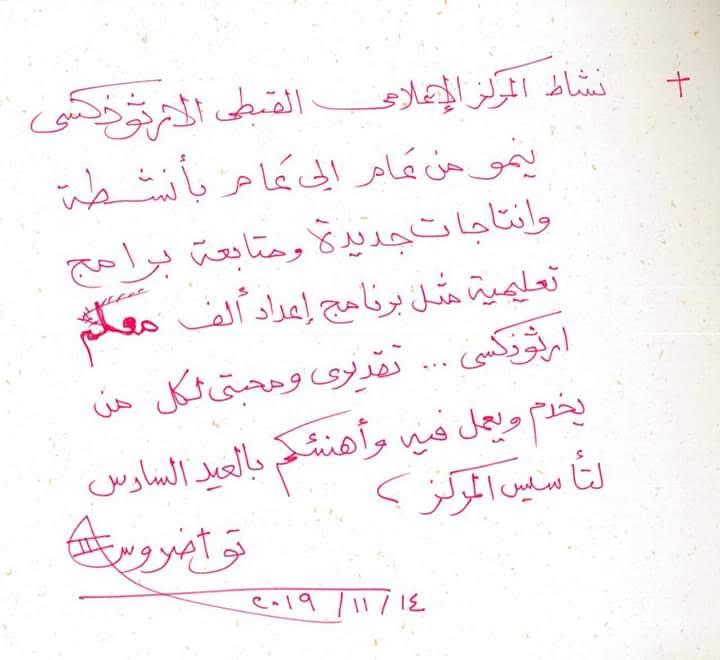 + نشاط المركز الإعلامى القبطى الارثوذكسى
ينمو من عَام الى عَام بأنشطة
وانتاجات جديدة ومتابعة برامج
تعليمية مثل برنامج إعداد ألف معلم
ارثوذكسى ... تقديرى ومحبتى لكل من
يخدم ويعمل فيه وأهنئكم بالعيد السادس
لتأسيس المركز ،
تواضروس II
٢٠١٩ / ١١ / ١٤